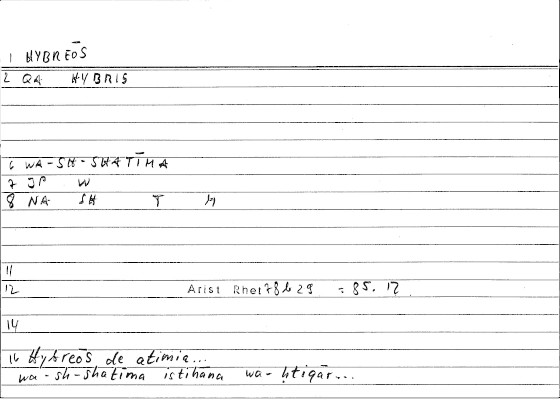 1 HYBREŌS
2 QA HYBRIS
6 WA-SH-SHATĪMA
7 JP W
8 NA SH T M
11
12 Arist Rhet 78b29 = 85.17
14
16 Hybreōs de atimia...
wa-sh-shatīma istihāna wa-ḥtiqār...